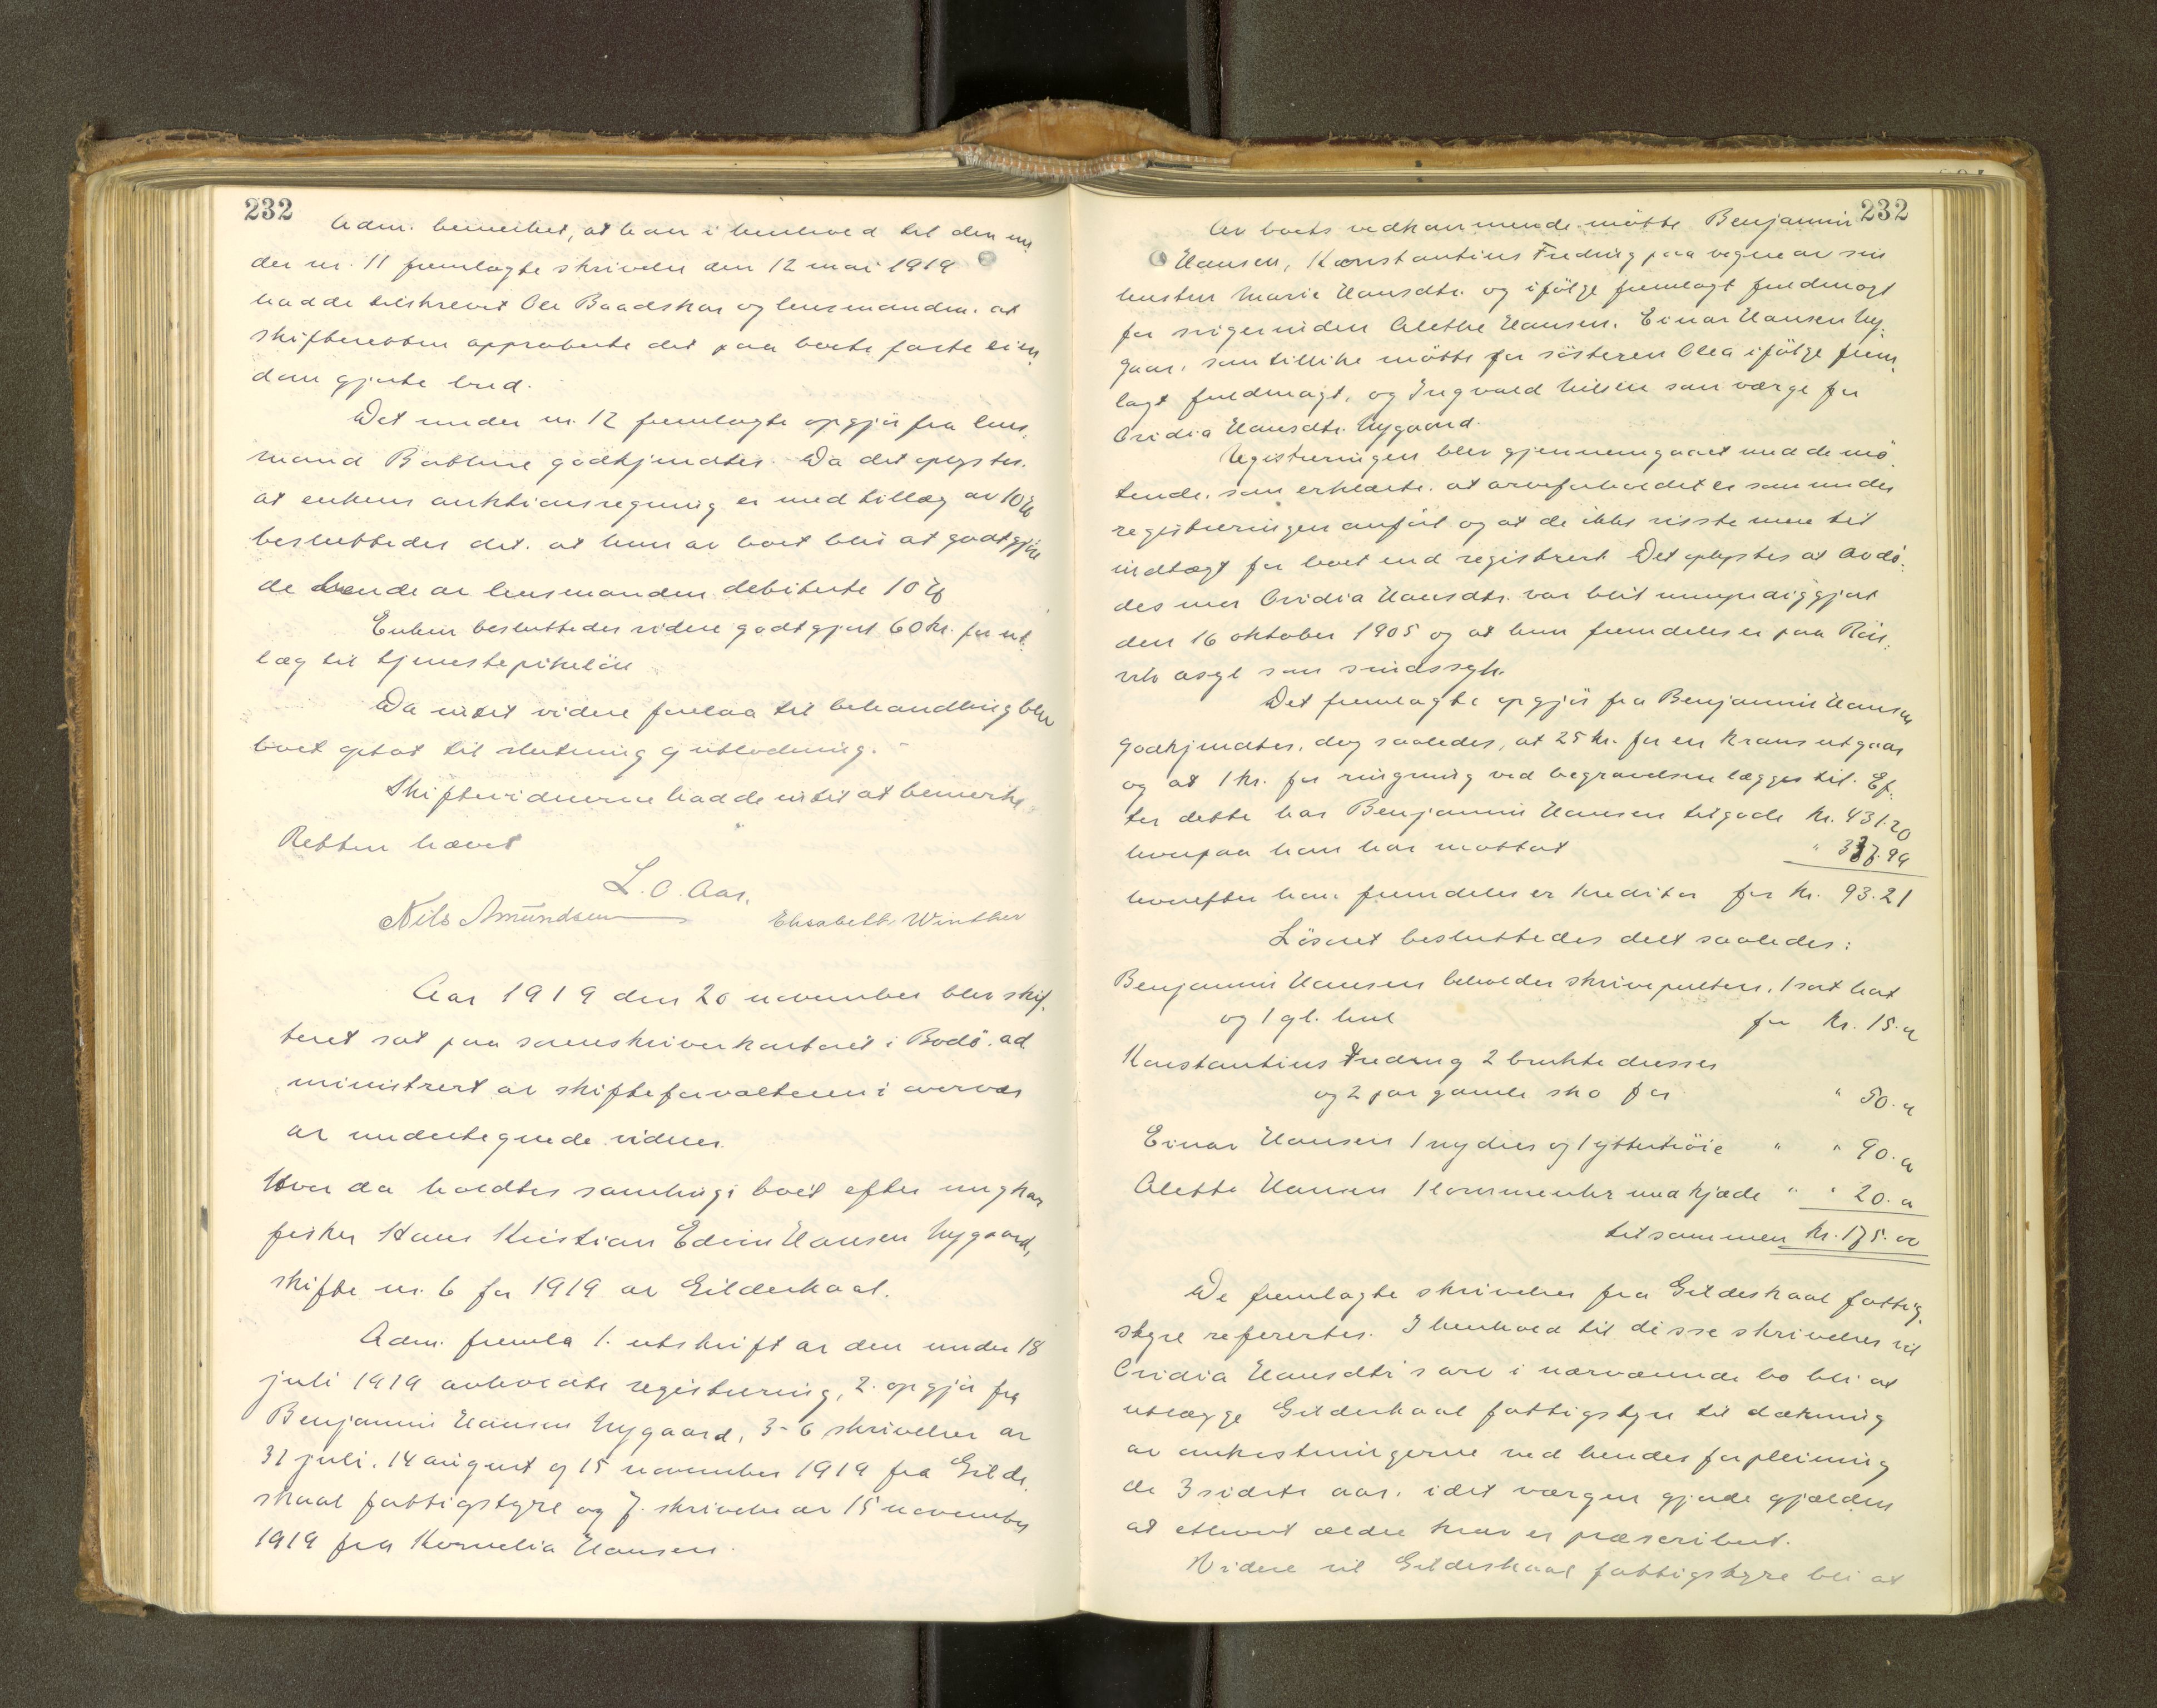 232
Adm. bemerket, at han i henhold til den un
der nr. 11 fremlagte skrivelse den 12 mai 1919
hadde tilskrevet Ole Baadskar og lensmanden. at
skifteretten approberte det paa boets faste eien
dom gjorte bud.
Det under nr. 12 fremlagte opgjör fra lens
mand godkjendtes. Da det oplystes.
at enkens auktionsregning er med tillæg av 10%
besluttedes det. at hun av boet blir at godtgjöre
de hende av lensmanden debiterte 10%
Enken besluttedes videre godtgjort 60 kr. for ut
læg til tjenestepikelön
Da intet videre forelaa til behandling blev
boet optat til slutning og utlodning.
Skiftevidnerne hadde intet at bemerke
Retten hævet
L. O. Aas.
Nils Amundsen Elisabeth Winther
Aar 1919 den 20 november blev skif.
teret sat paa sorenskriverkontoret i Bodö. ad
ministrert av skifteforvalteren i overvær
av undertegnede vidner.
Hvor da holdtes samling i boet efter ungkar
fisker Hans Kristian Edvin Hansen Nygaard,
skifte nr. 6 for 1919 av Gildeskaal.
Adm. fremla 1. utskrift av den under 18
juli 1919 avholdte registrering, 2. opgjör fra
Benjamin Hansen Nygaard, 3-6 skrivelser av
31 juli. 14 august og 15 november 1919 fra Gilde
skaal fattigstyre og 7. skrivelse av 15 november
1919 fra Kornelia Hansen.
232
Av boets vedkommende mötte Benjamin
Hansen, Konstantius Fredrig paa vegne av sin
hustru Marie Hansdtr. og ifölge fremlagt fuldmagt
for svigerinden Alethe Hansen. Einar Hansen Ny.
gaar. som tillike mötte for sösteren Olea ifölge frem
lagt fuldmagt, og Ingvald Nilsen som værge for
Ovidia Hansdtr. Nygaard.
Registreringen blev gjennemgaaet med de mö
tende. som erklærte. at arveforholdet er som under
registreringen anfört og at de ikke visste mere til
indtægt for boet end registrert. Det oplystes at avdö.
des mor Ovidia Hansdtr. var blit umyndiggjort
den 16 oktober 1905 og at hun fremdeles er paa Rön
vik asyl som sindssyk.
Det fremlagte opgjör fra Benjamin Hansen
godkjendtes, dog saaledes, at 25 kr. for en krans utgaar
og at 1 kr. for ringning ved begravelsen lægges til. Ef.
ter dette har Benjamin Hansen tilgode kr. 431.20
hvorpaa han har mottat " 337.99
hvorefter han fremdeles er kreditor for kr. 93.21
Lösöret besluttedes delt saaledes:
Benjamin Hansen beholder skrivepulten, 1 sort hat
og 1 gl. hue for kr. 15.00
Konstantius Fredrig 2 brukte dresser
og 2 par gamle sko for " 50.00
Einar Hansen 1 ny dres og 1 yttertröie " " 90.00
Alette Hansen 1 lommeuhr med kjæde " " 20.00
tilsammen kr. 175.00
De fremlagte skrivelser fra Gildeskaal fattig.
styre refererte. I henhold til disse skrivelser vil
Ovidia Hansdtr's arv i nærværende bo bli at
utlægge Gildeskaal fattigstyre til dækning
av omkostningerne ved hendes forpleining
de 3 sidste aar. idet værgen gjorde gjælden
at ethvert ældre krav er præscribert.
Videre vil Gildeskaal fattigstyre bli at